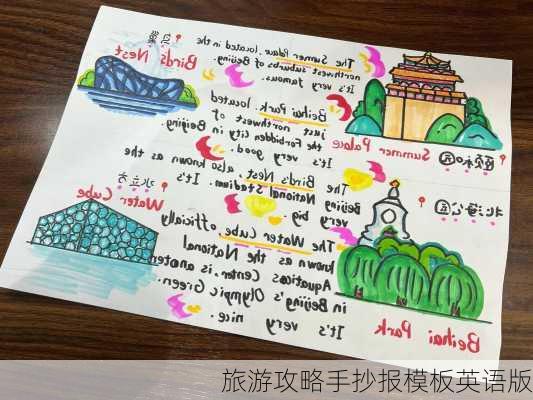 The Summer Palace, located in the
northwest suburbs of Beijing.
It's very famous.
鸟巢
Birds Nest
Beihai Park, located
just northwest of
the Forbidden City in Beijing.
It's very good.
颐和园
Summer Palace
The Birds Nest, also known as the
Beijing National Stadium. It's
very big.
水立方
Water Cube
北海公园
The Water Cube, officially
known as the National
Aquatics Center, is
in Beijing's Olympic Green.
It's very nice.
Beihai Park
旅游攻略手抄报模板英语版